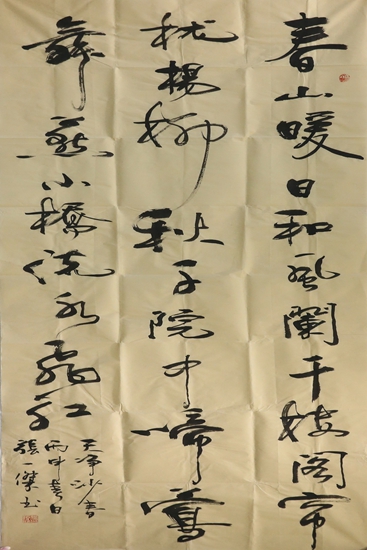 春山暖日和風闌干楼阁帘
栊楊柳秋千院中啼鶯
舞燕小橋流水飛红
天净沙春
丙申春日
張一傑书